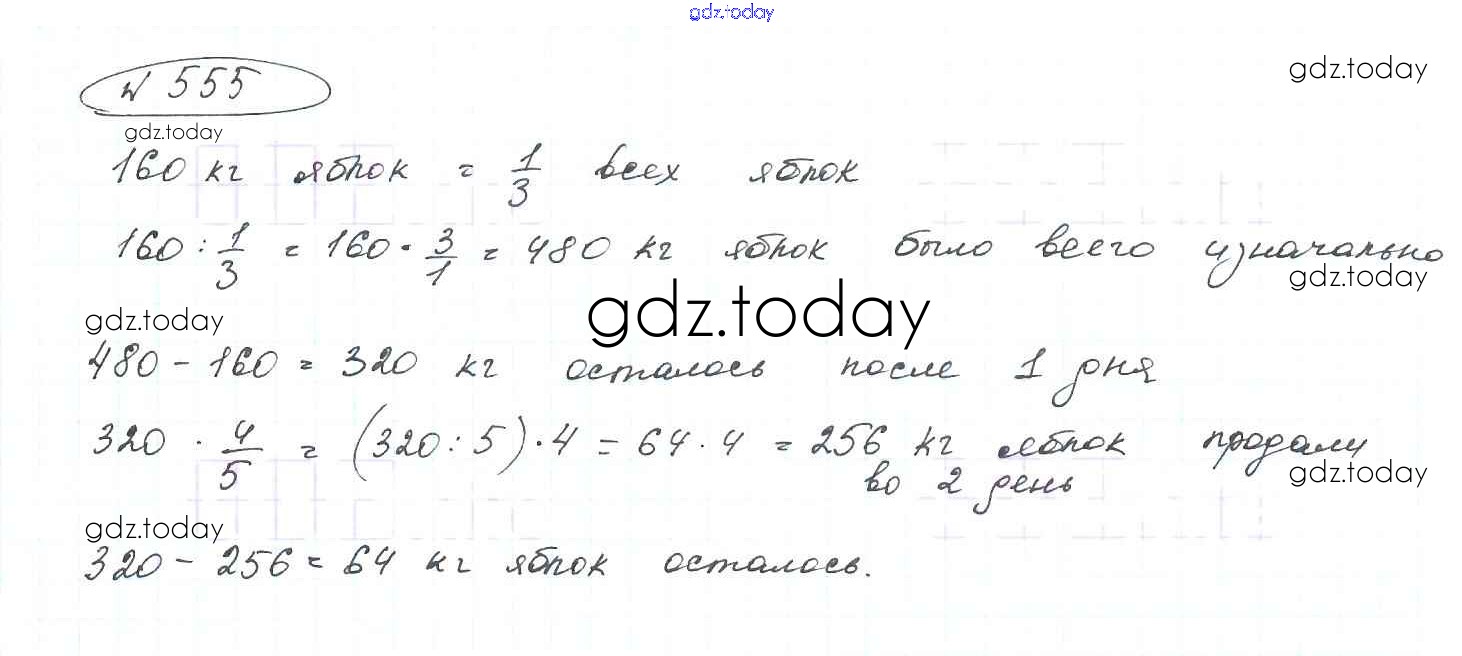 gdz.today
gdz.today
№ 555
gdz.today
160 кг яблок = 1/3 всех яблок
160 : 1/3 = 160 · 3/1 = 480 кг яблок было всего изначально
gdz.today
gdz.today
gdz.today
480 - 160 = 320 кг осталось после 1 дня
320 · 4/5 = (320 : 5) · 4 = 64 · 4 = 256 кг яблок продали
во 2 день
gdz.today
gdz.today
320 - 256 = 64 кг яблок осталось.